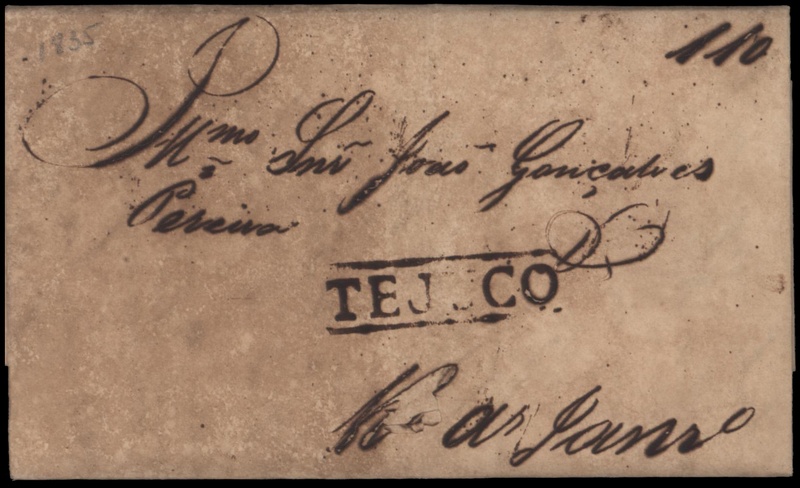 1835
110
Illmo Snr João Gonçalves
Pereira
TEJUCO
Rio de Janro